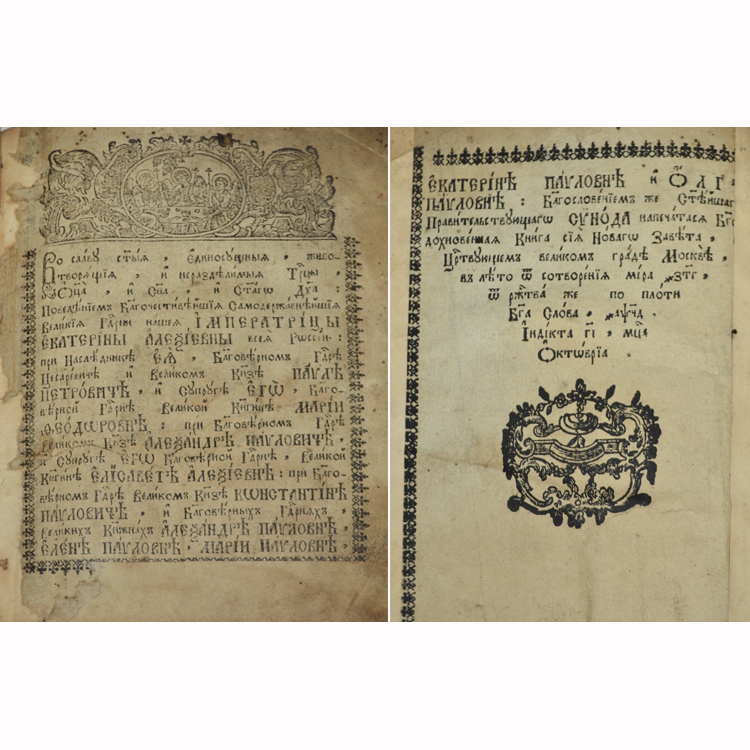 Во славу ст҃ыѧ, єдиносущныѧ, живо-
творѧщїѧ, и нераздѣлимыѧ Трⷪ҇цы,
Ѻ҆ц҃а, и҆ Сн҃а, и҆ Ст҃агѡ Дх҃а:
Повелѣнїемъ Благочестивѣйшїѧ Самодержавнѣйшїѧ
Великїѧ Гдⷭ҇рни нашеѧ І҆МПЕРАТРИЦЫ
Є҆КАТЕРІНЫ А҆ЛЕѮІЕВНЫ всеѧ Рѡссїи:
при Наслѣдникѣ Є҆Ѧ̀, Благовѣрномъ Гдⷭ҇рѣ
Цесаревичѣ и҆ Великомъ Кн҃зѣ ПАѴЛѢ
ПЕТРОВИЧѢ, и҆ Супругѣ Є҆ГѠ̀, Благо-
вѣрной Гдⷭ҇рнѣ Великой Кн҃гинѣ МАРІИ
Ѳ҆ЕОДѠРОВНѢ: при Благовѣрномъ Гдⷭ҇рѣ
Великомъ Кн҃зѣ А҆ЛЕѮАНДРѢ ПАѴЛОВИЧѢ,
и Супругѣ Є҆ГѠ̀ Благовѣрной Гдⷭ҇рнѣ, Великой
Кн҃гинѣ Є҆ЛІСАВЕТѢ А҆ЛЕѮІЕВНѢ: при Благо-
вѣрномъ Гдⷭ҇рѣ Великомъ Кн҃зѣ КѠНСТАНТІНѢ
ПАѴЛОВИЧѢ, и҆ Благовѣрныхъ Гдⷭ҇рнѧхъ,
Великихъ Кнѧжнахъ А҆ЛЕѮАНДРѢ ПАѴЛОВНѢ,
Є҆ЛЕНѢ ПАѴЛОВНѢ, МАРІИ ПАѴЛОВНѢ,
Є҆КАТЕРІНѢ ПАѴЛОВНѢ и҆
ПАѴЛОВНѢ: Благословенїемъ же Ст҃ѣйшаг
Правительствующагѡ СѴНОДА напечатасѧ Бг҃о
дохновеннаѧ Книга сїѧ Новагѡ Завѣта,
Црⷭ҇твующемъ великомъ градѣ Москвѣ,
въ лѣто ѿ сотворенїѧ мїра ҂зтг,
ѿ ржⷭ҇тва же по плоти
Бг҃а Слова, ҂аѱчд,
І҆ндікта гі, мцⷭ҇а
Октѡврїа